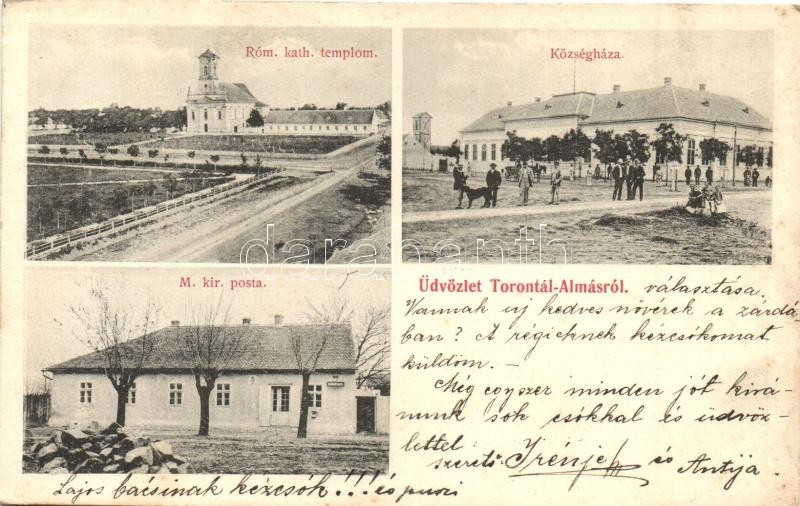 Róm. kath. templom.
Községháza.
M. kir. posta.
Üdvözlet Torontál-Almásról.
választása.
Vannak uj kedves nővérek a zárdá
ban? A régieknek kézcsókomat
küldöm. —
Még egyszer minden jót kivá-
nunk sok csókkal és üdvöz-
lettel
szerető: Irénje és Antija.
Lajos bácsinak kézcsók!!! és puszi
darabanth